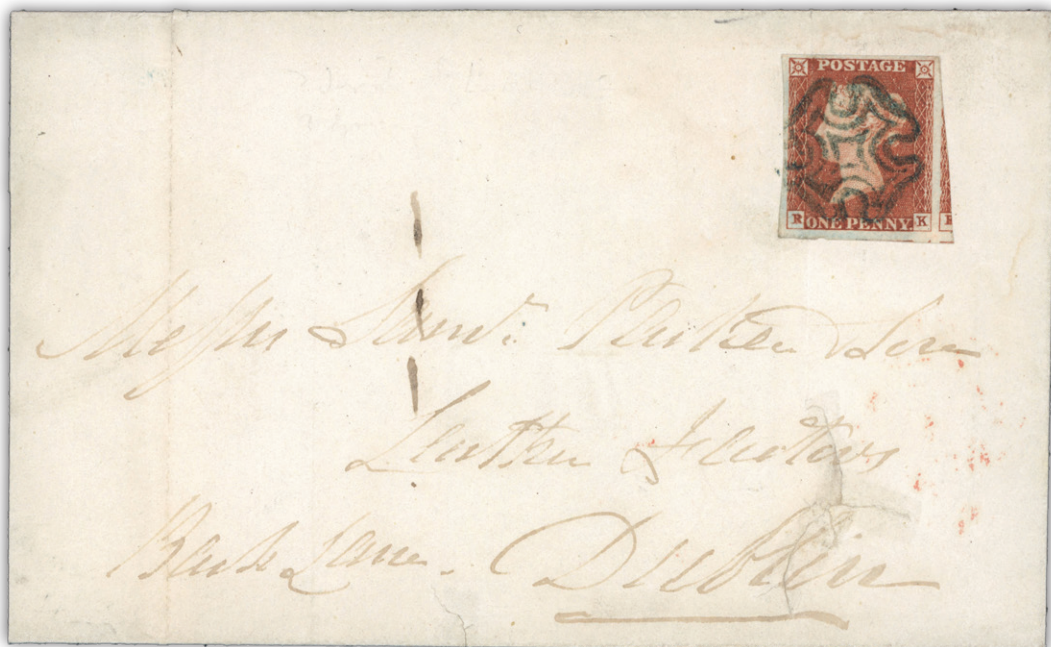 POSTAGE
R ONE PENNY. K
Messrs Saml. Parker & Son
Leather Factors
Back Lane. Dublin